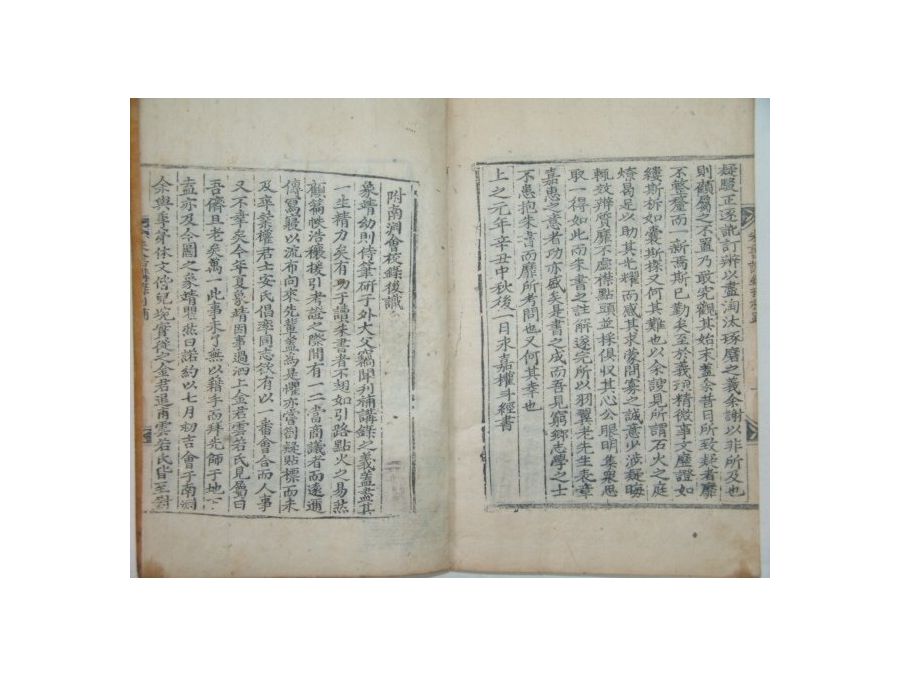 疑駁正逐訛訂辨以盡淘汰琢磨之義余謝以非所及也
則顧屬之不置乃敢究觀其始末蓋余昔日所致疑者靡
不整釐而一新焉斯已勤矣至於義理精微事文歷證如
縷斯析如囊斯探又何其難也以余謏見所謂石火之庭
燎曷足以助其光耀而感其求蒙問寡之誠意少涉疑晦
輒效辨質靡不虛襟點頭並採俱收其心公眼明集衆思
取一得如此而朱書之註解遂完所以羽翼老先生表章
嘉惠之意者功亦盛矣是書之成而吾見窮鄉志學之士
不患抱朱書而靡所考問也又何其幸也
上之元年辛丑中秋後一日永嘉權斗經書
附南澗會校錄後識
象靖幼則侍筆研于外大父竊聞刋補講錄之義蓋盡其
一生精力矣有功于讀朱書者不翅如引路點火之易然
顧篇帙浩穰援引考證之際間有一二當商議者而遠邇
傳寫寖以流布向來先輩蓋為是懼亦嘗劄疑貼標而未
及率業權君士安氏倡率同志欲有以一番會合而人事
又不幸矣今年夏象靖因事過泗上金君雲若氏見屬曰
吾儕且老矣萬一此事未了無以藉手而拜先師于地下
盍亦及今圖之象靖瞿然曰諾約以七月初吉會于南澗
余與季弟休文侄兒埦實從之金君退甫雲若氏皆至對